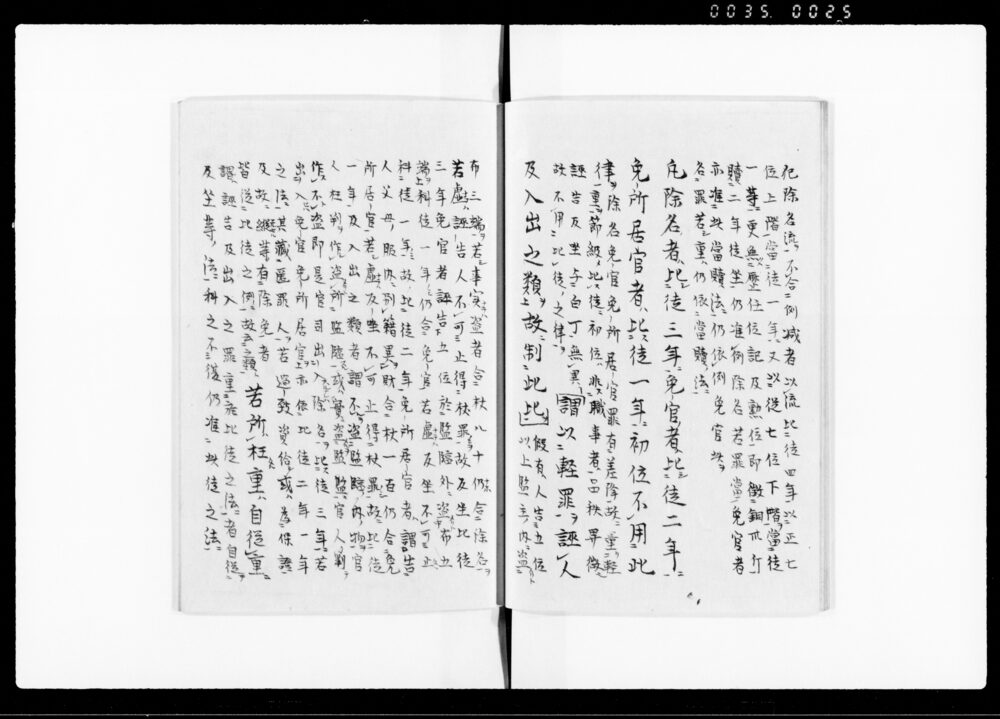 0035 0025
犯除名流不合例减者以流比徒四年以正七
位上階當徒一年又以從七位下階當徒
一等更無歴任位記及勲位即徴銅卅斤
贖二年徒坐仍准例除名若罪當免官者
亦准此當贖法仍依例免官此
各罪若重仍依當贖法
凡除名者比徒三年免官者比徒二年
免所居官者比徒一年初位不用此
律除名免官免所居官罪有差降故量軽
重節級比徒初位非職事者品秩卑微
誣告反坐与白丁無異
故不用比徒之律謂以軽罪誣人
及入出之類故制此比假有人告五位
以上監主内盗
布三端若事実盗者合杖八十仍合除名
若虚誣告人不可止得杖罪故反坐比徒
三年免官者誣告五位於監臨外盗布五
端上科徒一年仍合免官若虚反坐不可止
科徒一年故比徒二年免所居官者謂告
人父母服内別籍異財合杖一百仍合免
所居官若虚反坐不可止得杖罪故比徒
一年及入出之類者謂不盗監臨内物官
人枉判作盗所監臨或實盗監臨官人判
作不盗即是官司出入除名比徒三年若
出入免官免所居官上亦依比徒二年一年
之法其蔵匿罪人若過致資給或為保證
及故縦等有除免者
皆從比徒之例故云之類若所枉重自從重
謂誣告及出入之罪重於比徒之法者自從
反坐等法科之不復仍准比徒之法